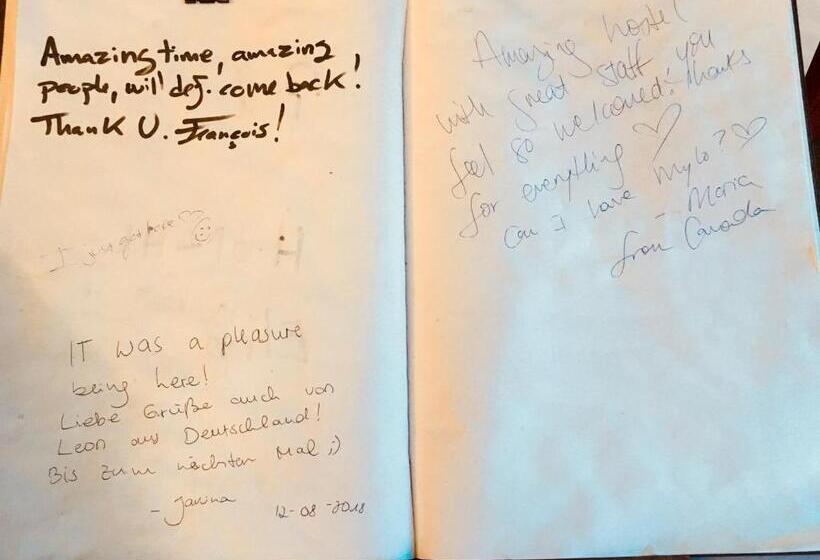 Amazing time, amazing
people, will def. come back!
Thank U. François!
I just got here
IT was a pleasure
being here!
Liebe Grüße auch von
Leon aus Deutschland!
Bis zum nächsten Mal ;)
- Janina 12-08-2018
Amazing hostel
with great staff you
feel so welcomed! Thanks
for everything ♡
Can I have Mylo? ♡
- Maria
from Canada